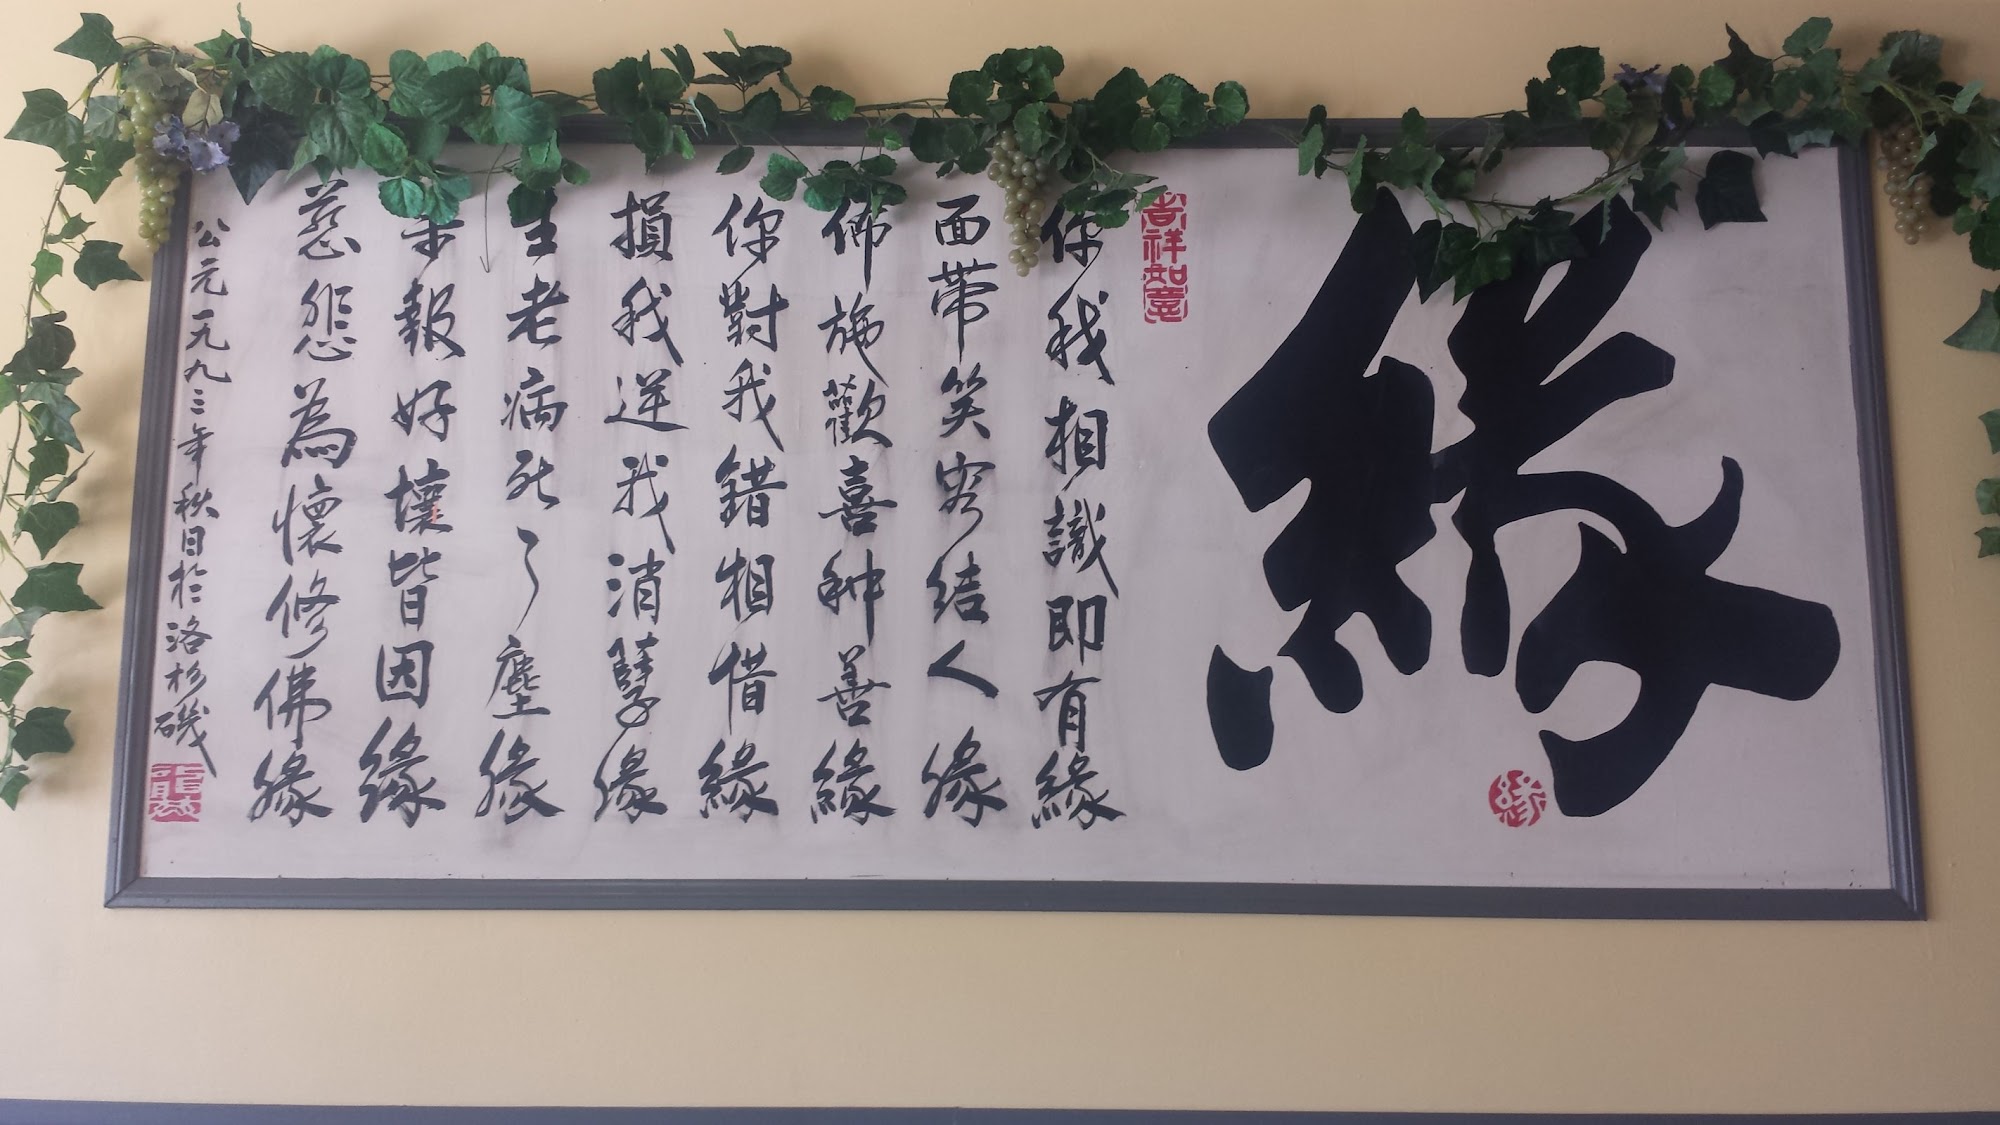 緣
吉祥如意
你我相識即有緣
面带笑容結人緣
佈施歡喜种善緣
你對我錯相惜緣
損我逆我消孽緣
生老病死了塵緣
報好壞皆因緣
慈悲為懷修佛緣
公元一九九三年秋日於洛杉磯